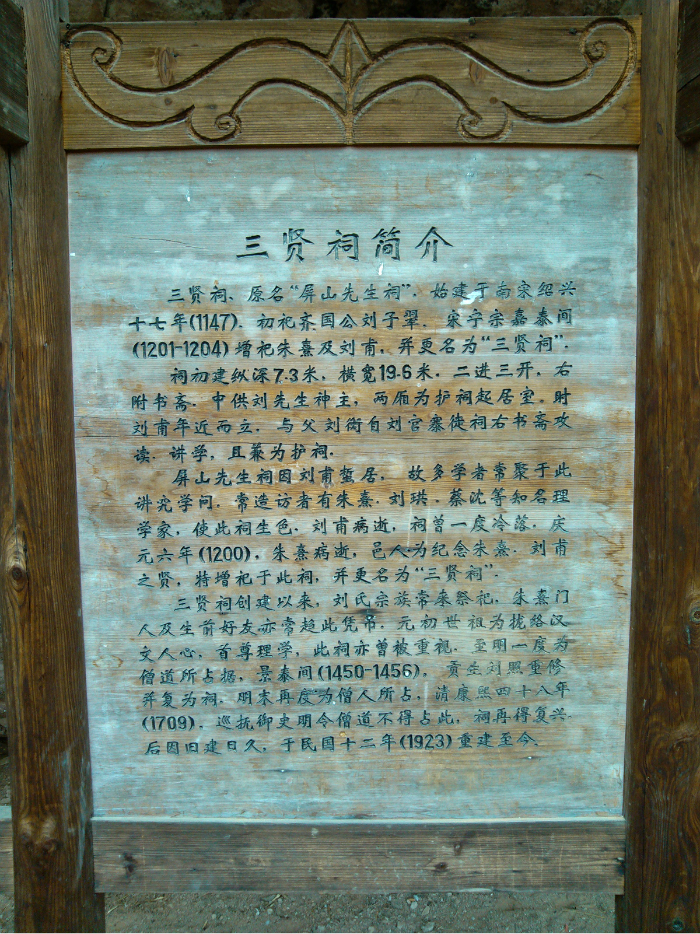 三贤祠简介
三贤祠、原名“屏山先生祠”，始建于南宋绍兴
十七年(1147)．初祀齐国公刘子翚．宋宁宗嘉泰间
(1201-1204)增祀朱熹及刘甫，并更名为“三贤祠”．
祠初建纵深7.3米，横宽19.6米．二进三开，右
附书斋．中供刘先生神主，两厢为护祠起居室．时
刘甫年近而立．与父刘衙自刘官寨徙祠右书斋攻
读．讲学，且兼为护祠．
屏山先生祠因刘甫蜇居，故多学者常聚于此
讲究学问．常造访者有朱熹．刘珙．蔡沈等知名理
学家，使此祠生色．刘甫病逝，祠曾一度冷落．庆
元六年(1200)，朱熹病逝，邑人为纪念朱熹．刘甫
之贤，特增祀于此祠，并更名为“三贤祠”．
三贤祠创建以来，刘氏宗族常来祭祀．朱熹门
人及生前好友亦常趋此凭吊．元初世祖为拢络汉
文人心，首尊理学，此祠亦曾被重视．至明一度为
僧道所占据，景泰间(1450-1456)，贡生刘熙重修
并复为祠．明末再度为僧人所占．清康熙四十八年
(1709)．巡抚御史明令僧道不得占此，祠再得复兴．
后因旧建日久，于民国十二年(1923)重建至今．